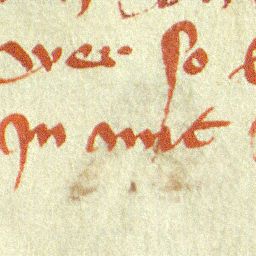 wer so
In mit